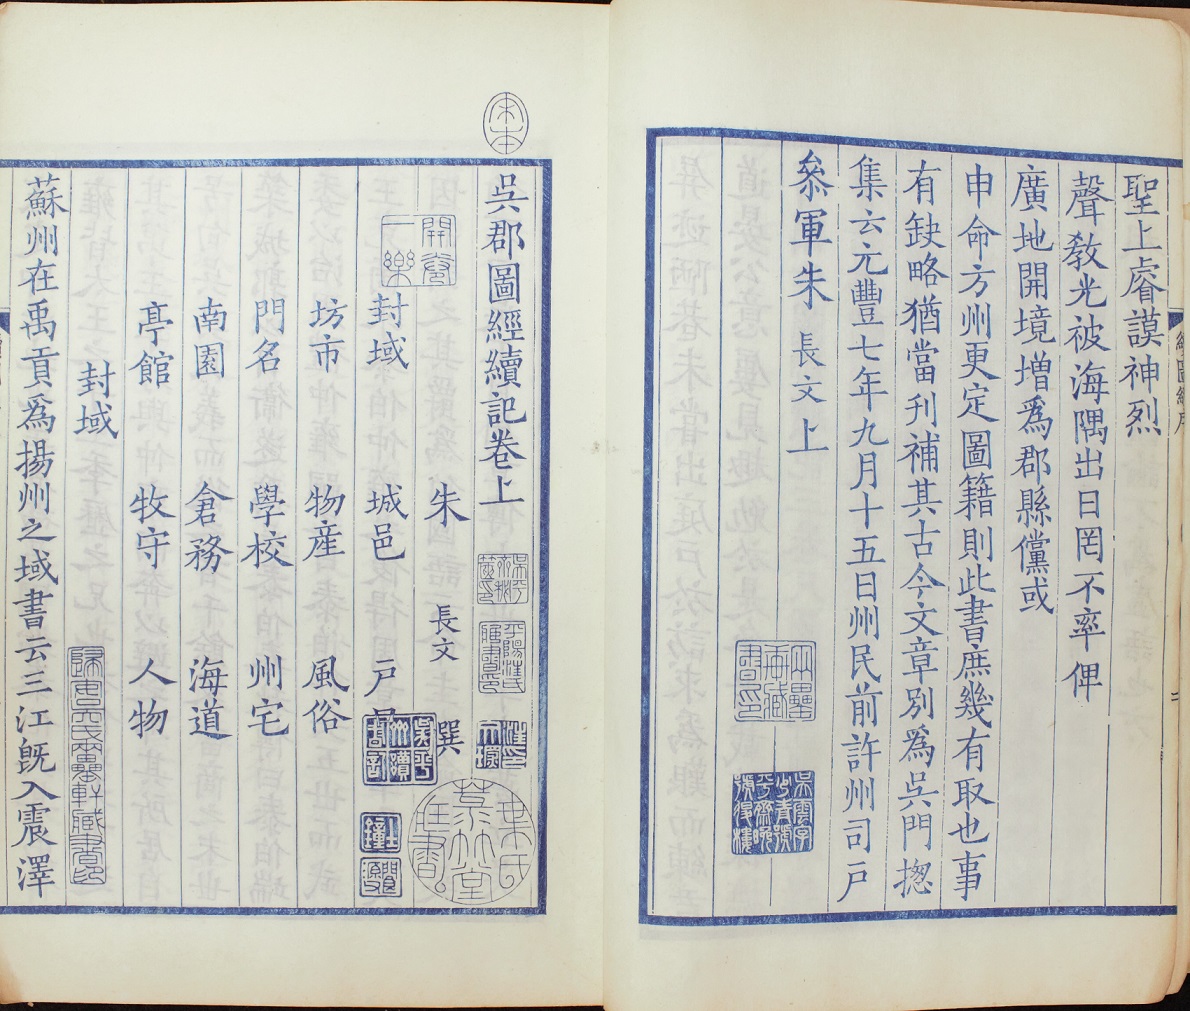 聖上睿謨神烈
聲敎光被海隅出日罔不率俾
廣地開境增爲郡縣儻或
申命方州更定圖籍則此書庶幾有取也事
有缺略猶當刊補其古今文章別爲吳門揔
集云元豐七年九月十五日州民前許州司戶
叅軍朱長文上
吳郡圖經續記卷上
朱長文撰
封域 城邑 戶
坊市 物産 風俗
門名 學校 州宅
南園 倉務 海道
亭館 牧守 人物
封域
蘇州在禹貢爲揚州之域書云三江旣入震澤